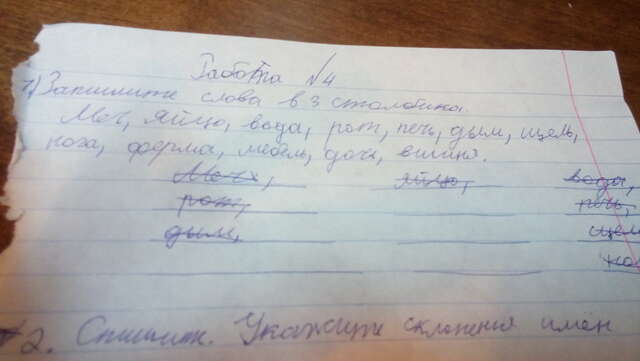 Работа №4
1) Запишите слова в 3 столбика.
Меч, яйцо, вода, рот, печь, дым, щель,
коза, ферма, мебель, дочь, вишня.
Меч, яйцо, вода,
рот, печь,
дым, щел
ко
2. Спишите. Укажите склонения имён